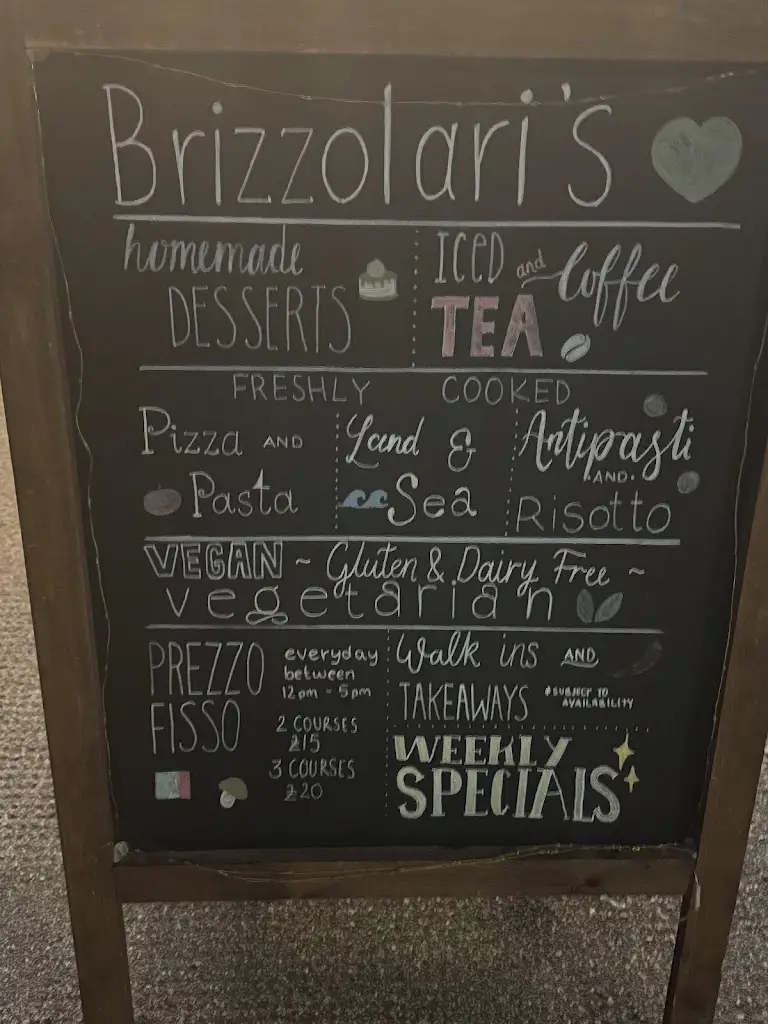 Brizzolari's
homemade
DESSERTS
ICED and Coffee
TEA
FRESHLY COOKED
Pizza AND
Pasta
Land &
Sea
Antipasti
AND
Risotto
VEGAN ~ Gluten & Dairy Free ~
vegetarian
PREZZO
FISSO
everyday
between
12pm - 5pm
2 COURSES
£15
3 COURSES
£20
Walk ins AND
TAKEAWAYS *SUBJECT TO
AVAILABILITY
WEEKLY
SPECIALS